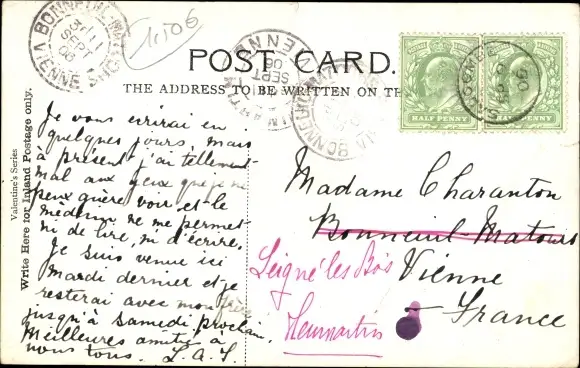 POST CARD.
THE ADDRESS TO BE WRITTEN ON TH
Valentine's Series
Write Here for Inland Postage only.
Je vous écrirai en
quelques jours, mais
à présent j'ai tellement
mal aux yeux que je ne
peux guère voir et le
médecin ne me permet
ni de lire, ni d'écrire.
Je suis venue ici
mardi dernier et je
resterai avec mon frère
jusqu'à Samedi prochain.
Meilleures amitiés à
vous tous. L.A.S.
HALF PENNY
HALF PENNY
Madame Charanton
Bonneuil-Matours
Leigné les Bois
Vienne
France
BONNEUIL-MA
11
SEPT
06
VIENNE
SEPT
06
BONNEUIL